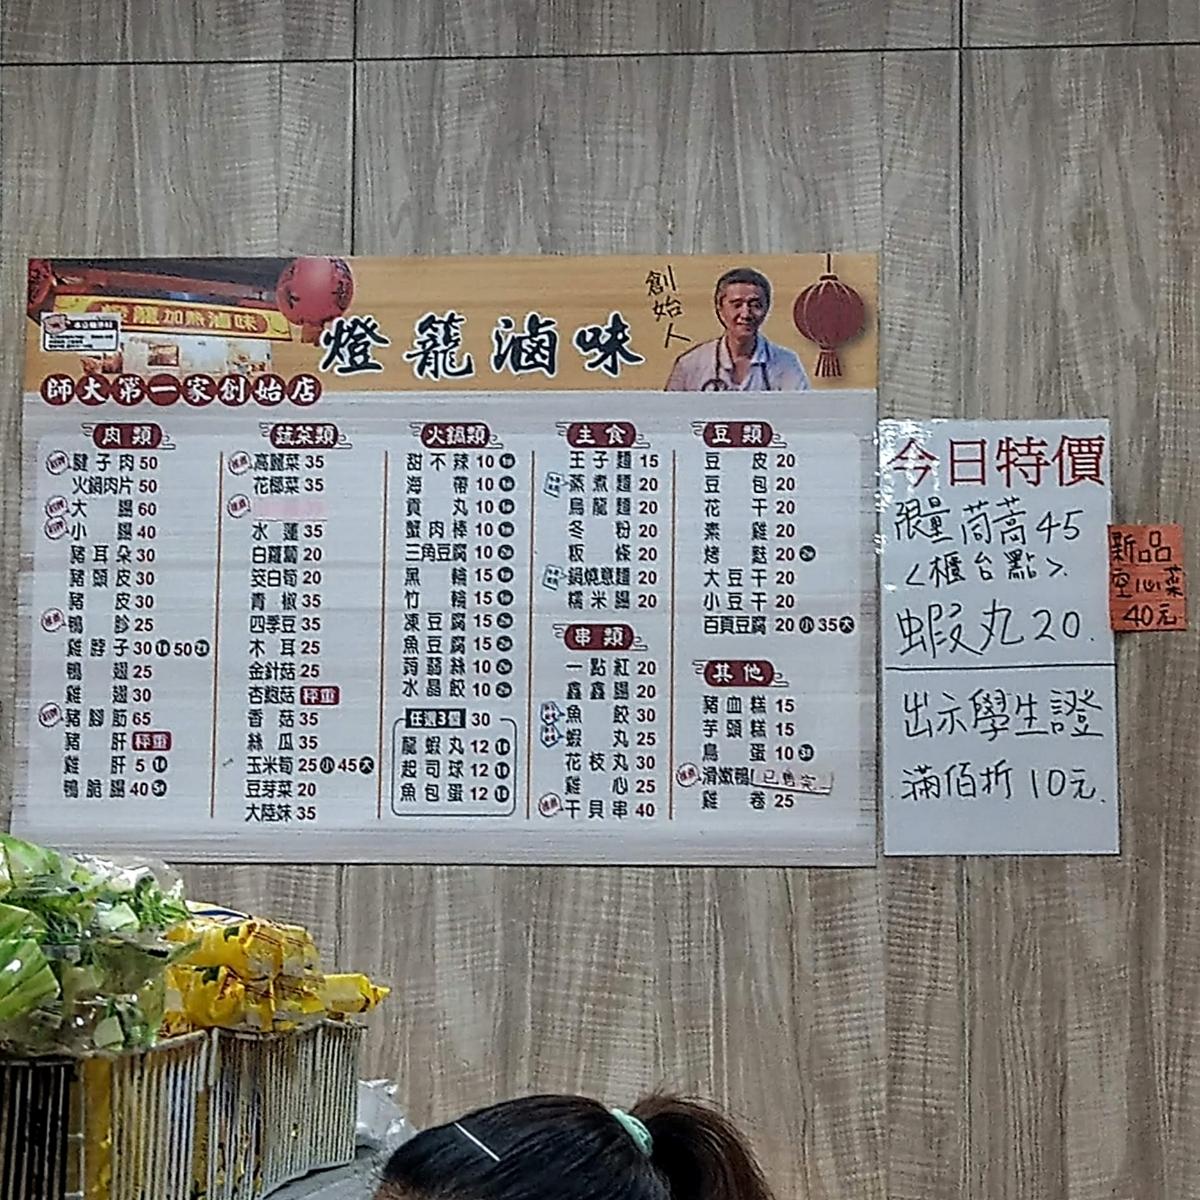 龍加熱滷味
燈籠滷味
創始人
師大第一家創始店
肉類
招牌 腱子肉 50
火鍋肉片 50
招牌 大腸 60
招牌 小腸 40
豬耳朵 30
豬頭皮 30
豬皮 30
推薦 鴨胗 25
雞脖子 30 1隻 50 2隻
鴨翅 25
雞翅 30
招牌 豬腳筋 65
豬肝 秤重
雞肝 5
鴨脆腸 40
蔬菜類
推薦 高麗菜 35
花椰菜 35
推薦
水蓮 35
白蘿蔔 20
筊白筍 20
青椒 35
四季豆 35
木耳 25
金針菇 25
杏鮑菇 秤重
香菇 35
絲瓜 35
玉米筍 25 小 45 大
豆芽菜 20
大陸妹 35
火鍋類
甜不辣 10
海帶 10
貢丸 10
蟹肉棒 10
三角豆腐 10
黑輪 15
竹輪 15
凍豆腐 15
魚豆腐 15
蒟蒻絲 10
水晶餃 10
任選3個 30
龍蝦丸 12
起司球 12
魚包蛋 12
主食
王子麵 15
蒸煮麵 20
烏龍麵 20
冬粉 20
粄條 20
鍋燒意麵 20
糯米腸 20
串類
一點紅 20
鑫鑫腸 20
魚餃 30
蝦丸 25
花枝丸 30
雞心 25
推薦 干貝串 40
豆類
豆皮 20
豆包 20
花干 20
素雞 20
烤麩 20
大豆干 20
小豆干 20
百頁豆腐 20 小 35 大
其他
豬血糕 15
芋頭糕 15
鳥蛋 10
推薦 滑嫩鴨 已售完
雞卷 25
今日特價
限量茼蒿 45
<櫃台點>
蝦丸 20.
出示學生證
滿佰折10元.
新品
空心菜
40元